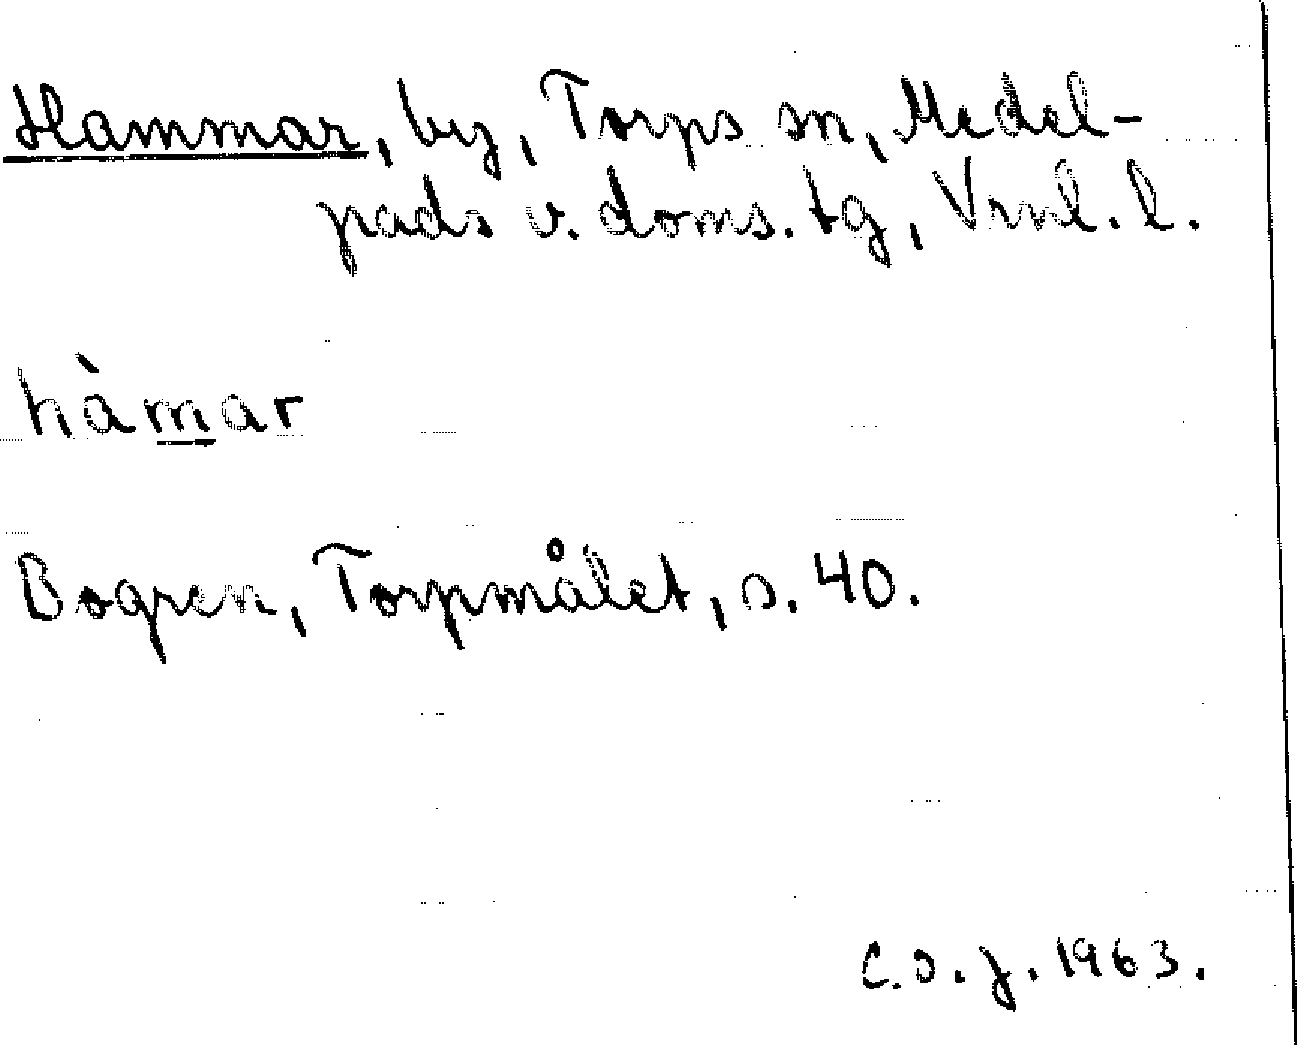 Hammar, by, Torps sn, Medel-
pads v. doms. tg, Vrnl. l.
hàmar
Bogren, Torpmålet, s. 40.
C.O.J. 1963.